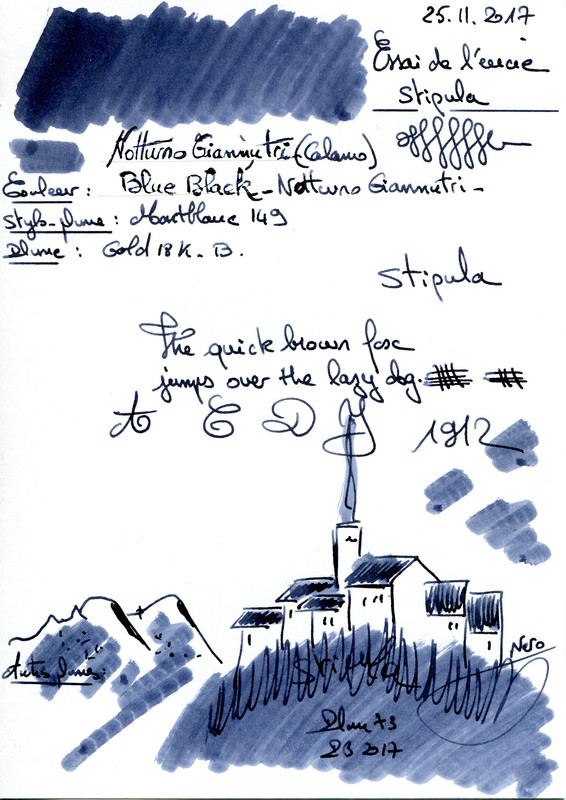 25.11.2017
Essai de l'encre
Stipula
Notturno Giannutri (Calamo)
Couleur : Blue Black - Notturno Giannutri -
Stylo-plume : Montblanc 149
Plume : Gold 18 K - B.
Stipula
The quick brown fox
jumps over the lazy dog.
A E D Y 1912
Nero
Autres plumes :
Stipula
Plum 73
23 2017